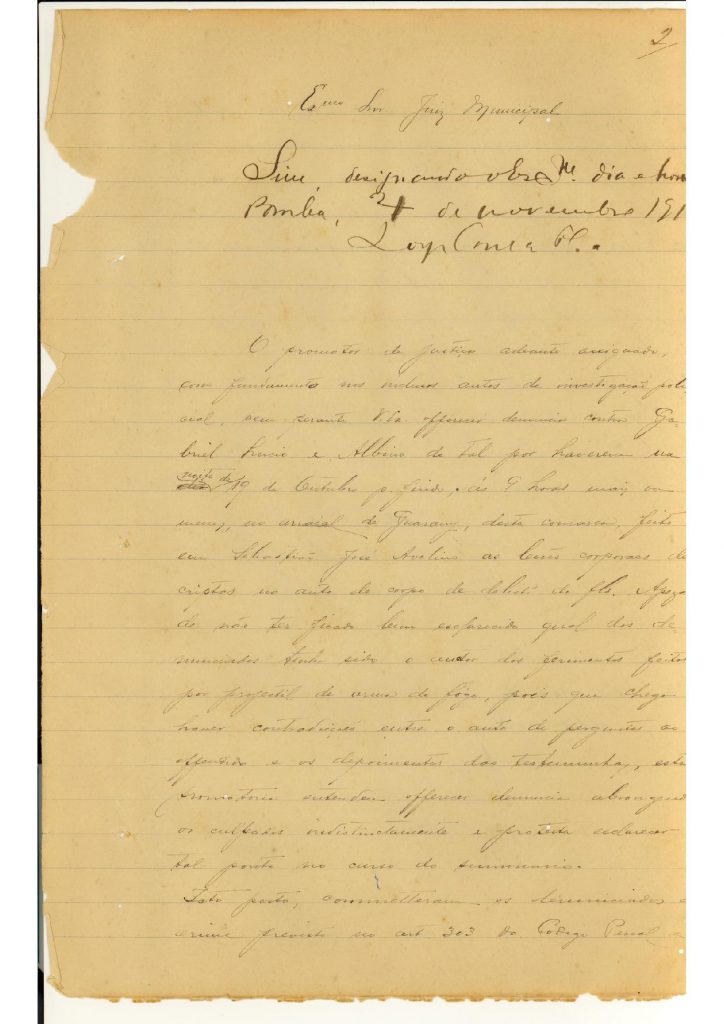 2
Exmo Snr Juiz Municipal
Sim, designando o Escrm. dia e hora
Pomba, 24 de novembro 191
O promotor de justiça adeante assignado,
com fundamento nos inclusos autos de investigação poli
cial, vem perante V.Sa. offerecer denuncia contra Ga-
briel Lucio e Albino de Tal por haverem na
noite de 19 de Outubro p. findo, ás 9 horas mais ou
menos, no arraial de Guarany, desta comarca, feito
em Sebastião José Avelino as lesões corporaes de
criptas no auto de corpo de delicto de fls. Apezar
de não ter ficado bem esclarecido qual dos de-
nunciados tenha sido o autor dos ferimentos feitos
por projectil de arma de fogo, pois que chega
haver contradicção entre o auto de perguntas ao
offendido e os depoimentos das testemunhas, esta
promotoria entendeu offerecer denuncia abrangend
os culpados indistinctamente e protesta esclarecer
tal ponto no curso do summario.
Isto posto, commetteram os denunciados o
crime previsto no art 303 do Codigo Penal e